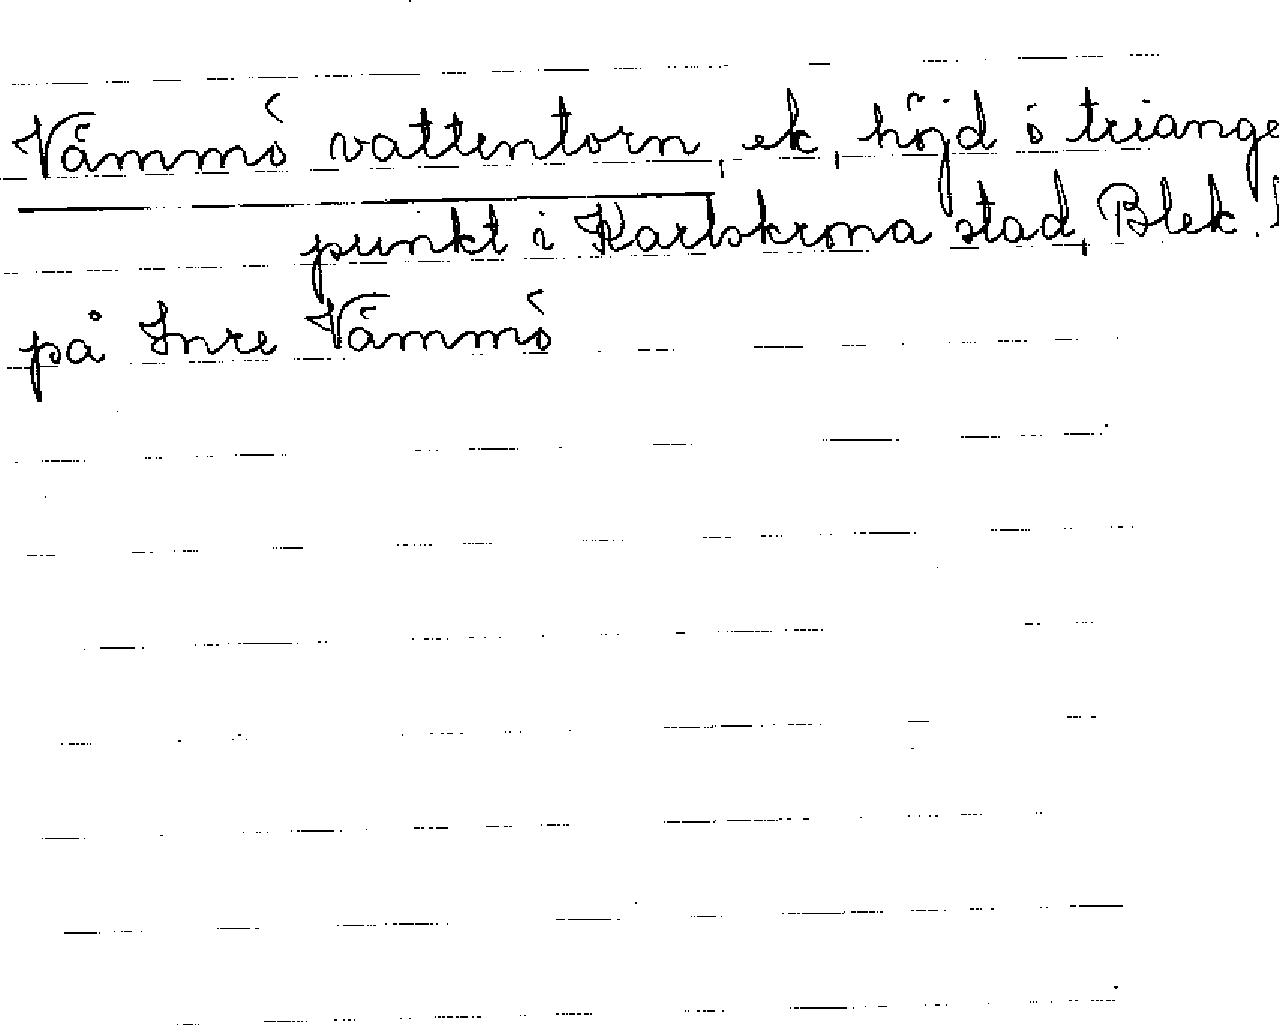 Vämmö vattentorn, ek, höjd o triange
punkt i Karlskrona stad, Blek. l
på Inre Vämmö